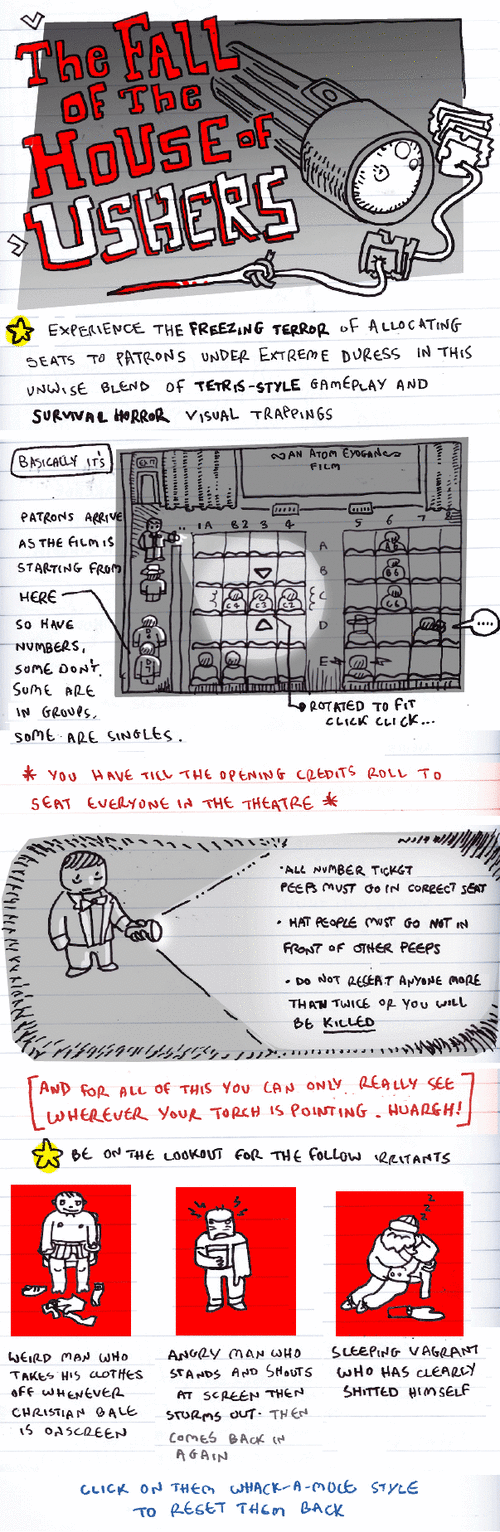 The FALL
OF The
HOUSE OF
USHERS
EXPERIENCE THE FREEZING TERROR OF ALLOCATING
SEATS TO PATRONS UNDER EXTREME DURESS IN THIS
UNWISE BLEND OF TETRIS-STYLE GAMEPLAY AND
SURVIVAL HORROR VISUAL TRAPPINGS
BASICALLY IT'S
PATRONS ARRIVE
AS THE FILM IS
STARTING FROM
HERE
SO HAVE
NUMBERS,
SOME DON'T.
SOME ARE
IN GROUPS,
SOME ARE SINGLES.
AN ATOM EYOGAN
FILM
1A B2 3 4
5 6 7 8
A
B
C
D
E
A6
B6
C6
C4 C3 C2
...
ROTATED TO FIT
CLICK CLICK...
* YOU HAVE TILL THE OPENING CREDITS ROLL TO
SEAT EVERYONE IN THE THEATRE *
• ALL NUMBER TICKET
PEEPS MUST GO IN CORRECT SEAT
• HAT PEOPLE MUST GO NOT IN
FRONT OF OTHER PEEPS
• DO NOT RESEAT ANYONE MORE
THAN TWICE OR YOU WILL
BE KILLED
[AND FOR ALL OF THIS YOU CAN ONLY REALLY SEE
WHEREVER YOUR TORCH IS POINTING. HUARGH!]
BE ON THE LOOKOUT FOR THE FOLLOW IRRITANTS
Z
Z
Z
WEIRD MAN WHO
TAKES HIS CLOTHES
OFF WHENEVER
CHRISTIAN BALE
IS ONSCREEN
ANGRY MAN WHO
STANDS AND SHOUTS
AT SCREEN THEN
STORMS OUT. THEN
COMES BACK IN
AGAIN
SLEEPING VAGRANT
WHO HAS CLEARLY
SHITTED HIMSELF
CLICK ON THEM WHACK-A-MOLE STYLE
TO RESET THEM BACK